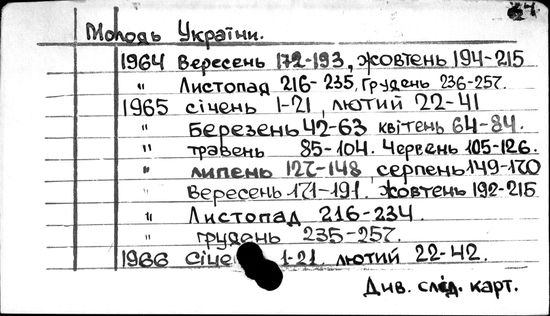 Молодь України.
1964 Вересень 172-193, жовтень 194-215
" Листопад 216-235, Грудень 236-257.
1965 січень 1-21, лютий 22-41
" Березень 42-63 квітень 64-84.
" травень 85-104. Червень 105-126.
" липень 127-148, серпень 149-170
Вересень 171-191. жовтень 192-215
" Листопад 216-234.
" грудень 235-257.
1966 Січе 1-21. лютий 22-42.
Див. слід. карт.